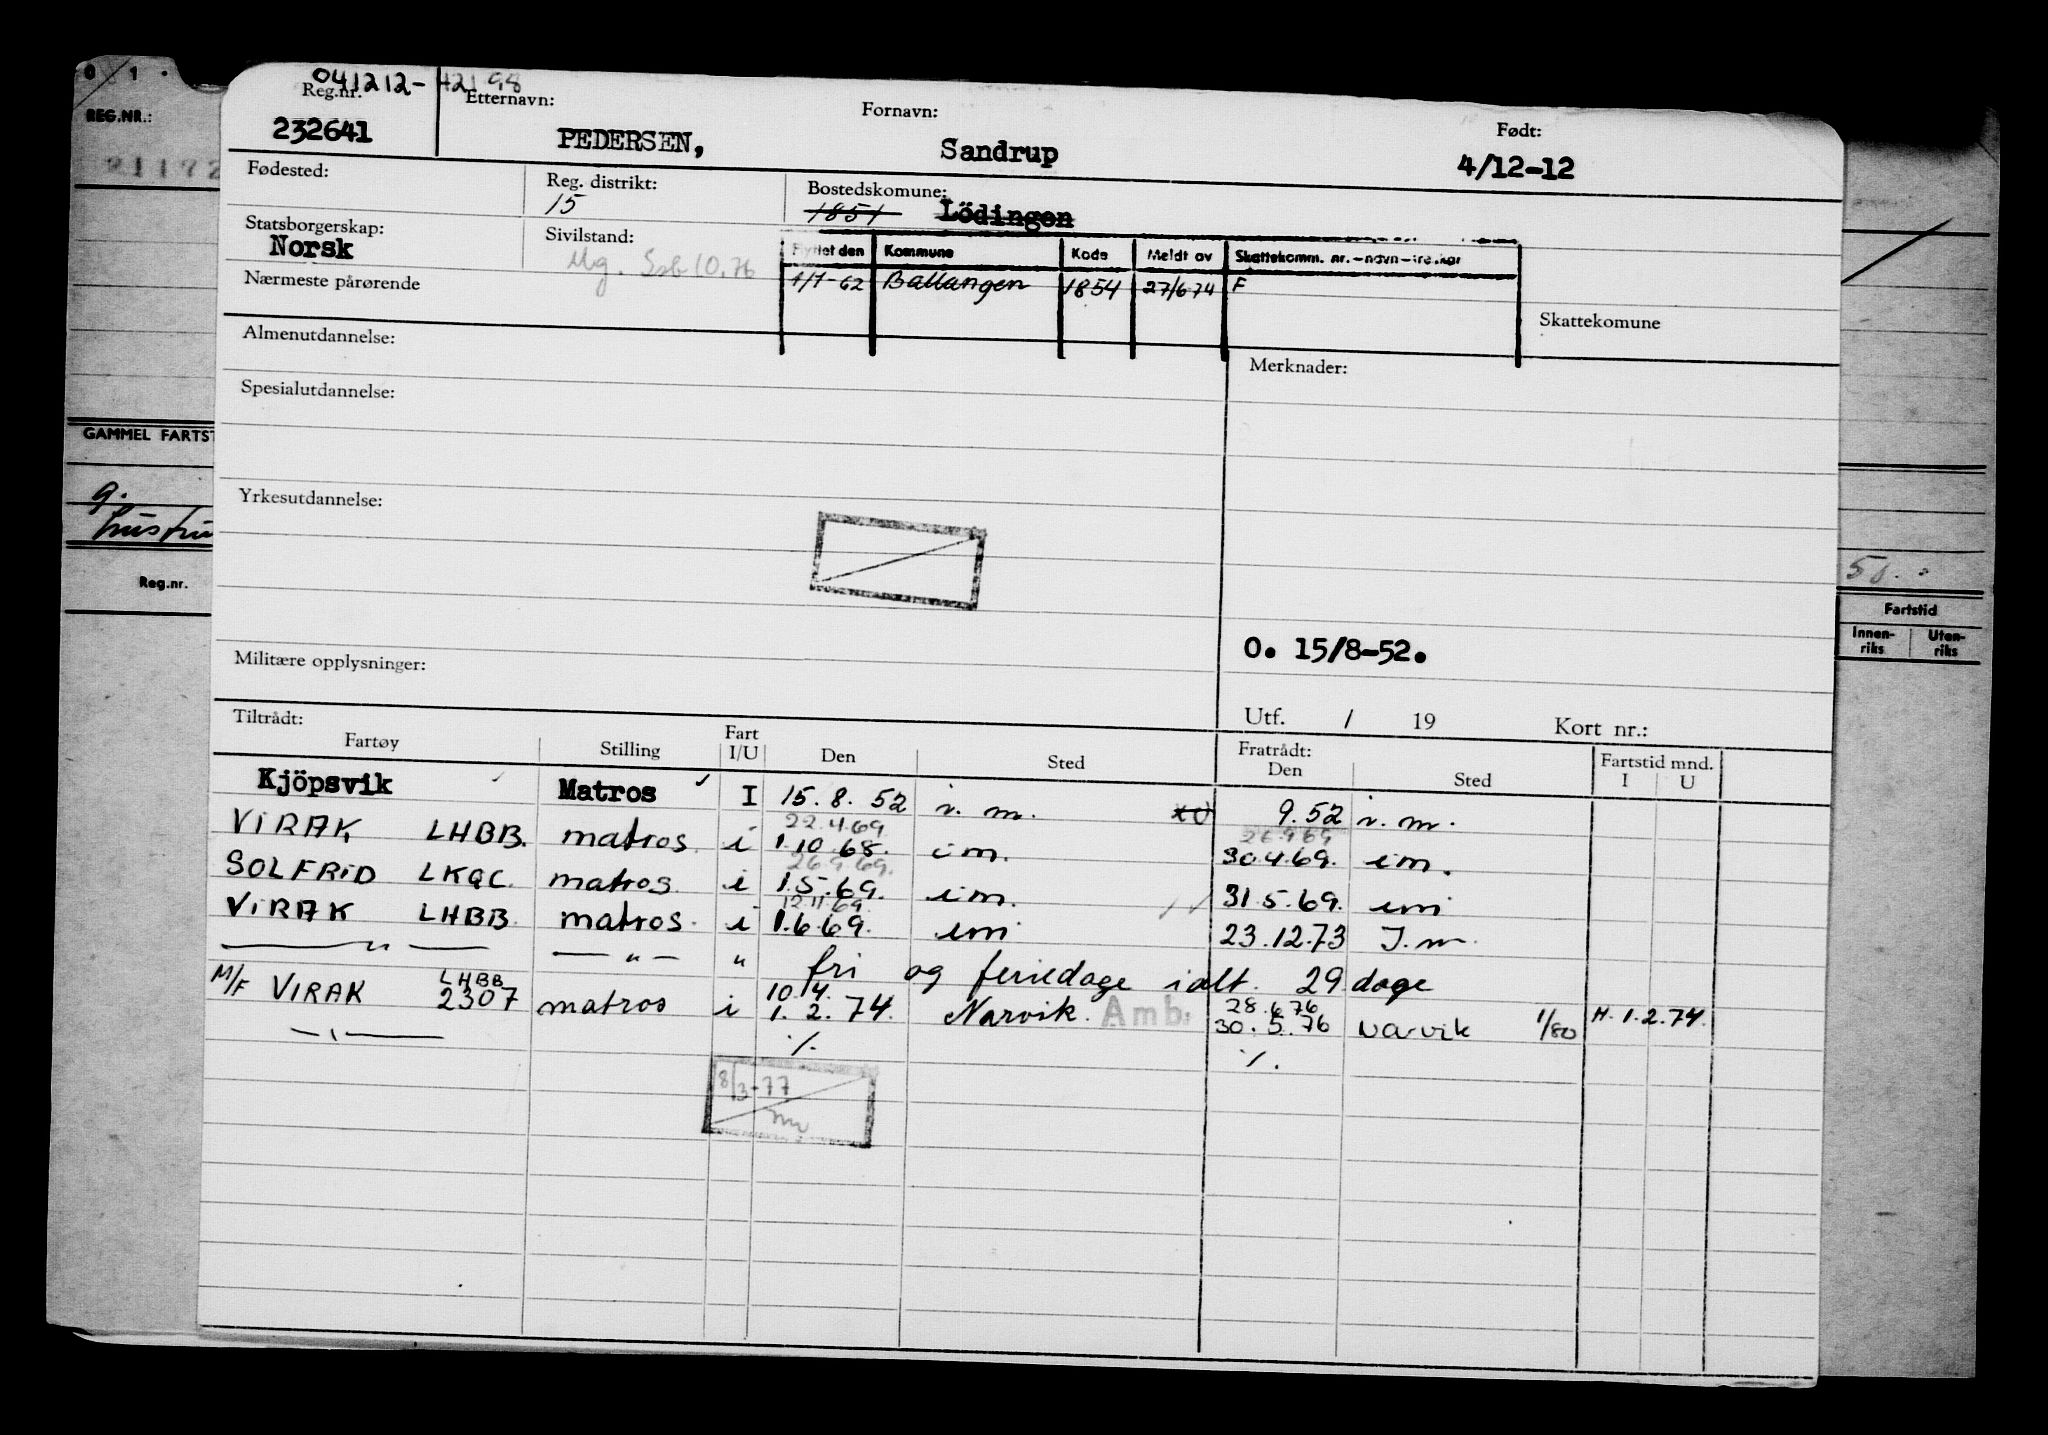 0 1 .
REG.NR.:
041212-42198
Reg.nr. Etternavn: Fornavn: Født:
232641 PEDERSEN, Sandrup 4/12-12
Fødested: Reg. distrikt: Bostedskomune:
15 1851 Lödingen
Statsborgerskap: Sivilstand:
Norsk Ug. Ssb 10.76
Flyttet den Kommune Kode Meldt av Skattekomm. nr.-navn-fra.kar
1/7-62 Ballangen 1854 27/6 74 F
Nærmeste pårørende
Skattekomune
Almenutdannelse: Merknader:
Spesialutdannelse:
GAMMEL FARTST
g.
hustru
Yrkesutdannelse:
Reg.nr.
50.
Fartstid
Innen-riks Uten-riks
O. 15/8-52.
Militære opplysninger:
Tiltrådt: Utf. / 19 Kort nr.:
Fartøy Stilling Fart I/U Den Sted Fratrådt: Den Sted Fartstid mnd. I U
Kjöpsvik Matros I 15. 8. 52 i. m. 9.52 i. m.
22.4.69 26.9 69
VIRAK LHBB. matros. i 1.10.68. im. 30.4.69. im.
26.9.69.
SOLFRID LKQC. matros. i 1.5.69. im. 31.5.69. im
12.11.69.
VIRAK LHBB. matros. i 1.6.69. im 23.12.73 I.m.
— " — — " — " fri og feriedage ialt. 29 dage
LHBB 10.4. 28.6.76
M/F VIRAK 2307 matros i 1. 2. 74. Narvik. Amb. 30. 5. 76 Narvik 1/80 H. 1.2.74.
— " — ./. ./.
8/3-77